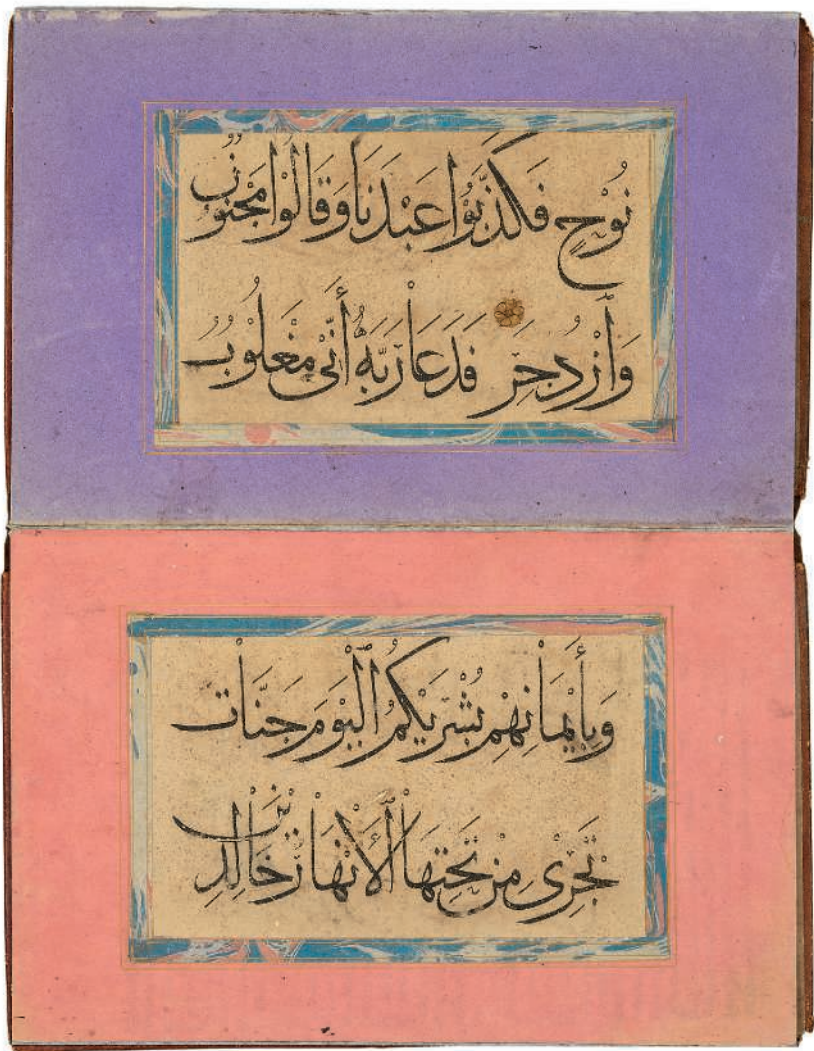 نُوْحٍ فَكَذَّبُوْا عَبْدَنَا وَقَالُوْا مَجْنُوْنٌ
وَٱزْدُجِرَ فَدَعَا رَبَّهُٓ أَنِّى مَغْلُوْبٌ
وَبِأَيْمَانِهِمْ بُشْرَىكُمُ ٱلْيَوْمَ جَنَّات
تَجْرِى مِنْ تَحْتِهَا ٱلْأَنْهَارُ خَالِدِيْنَ